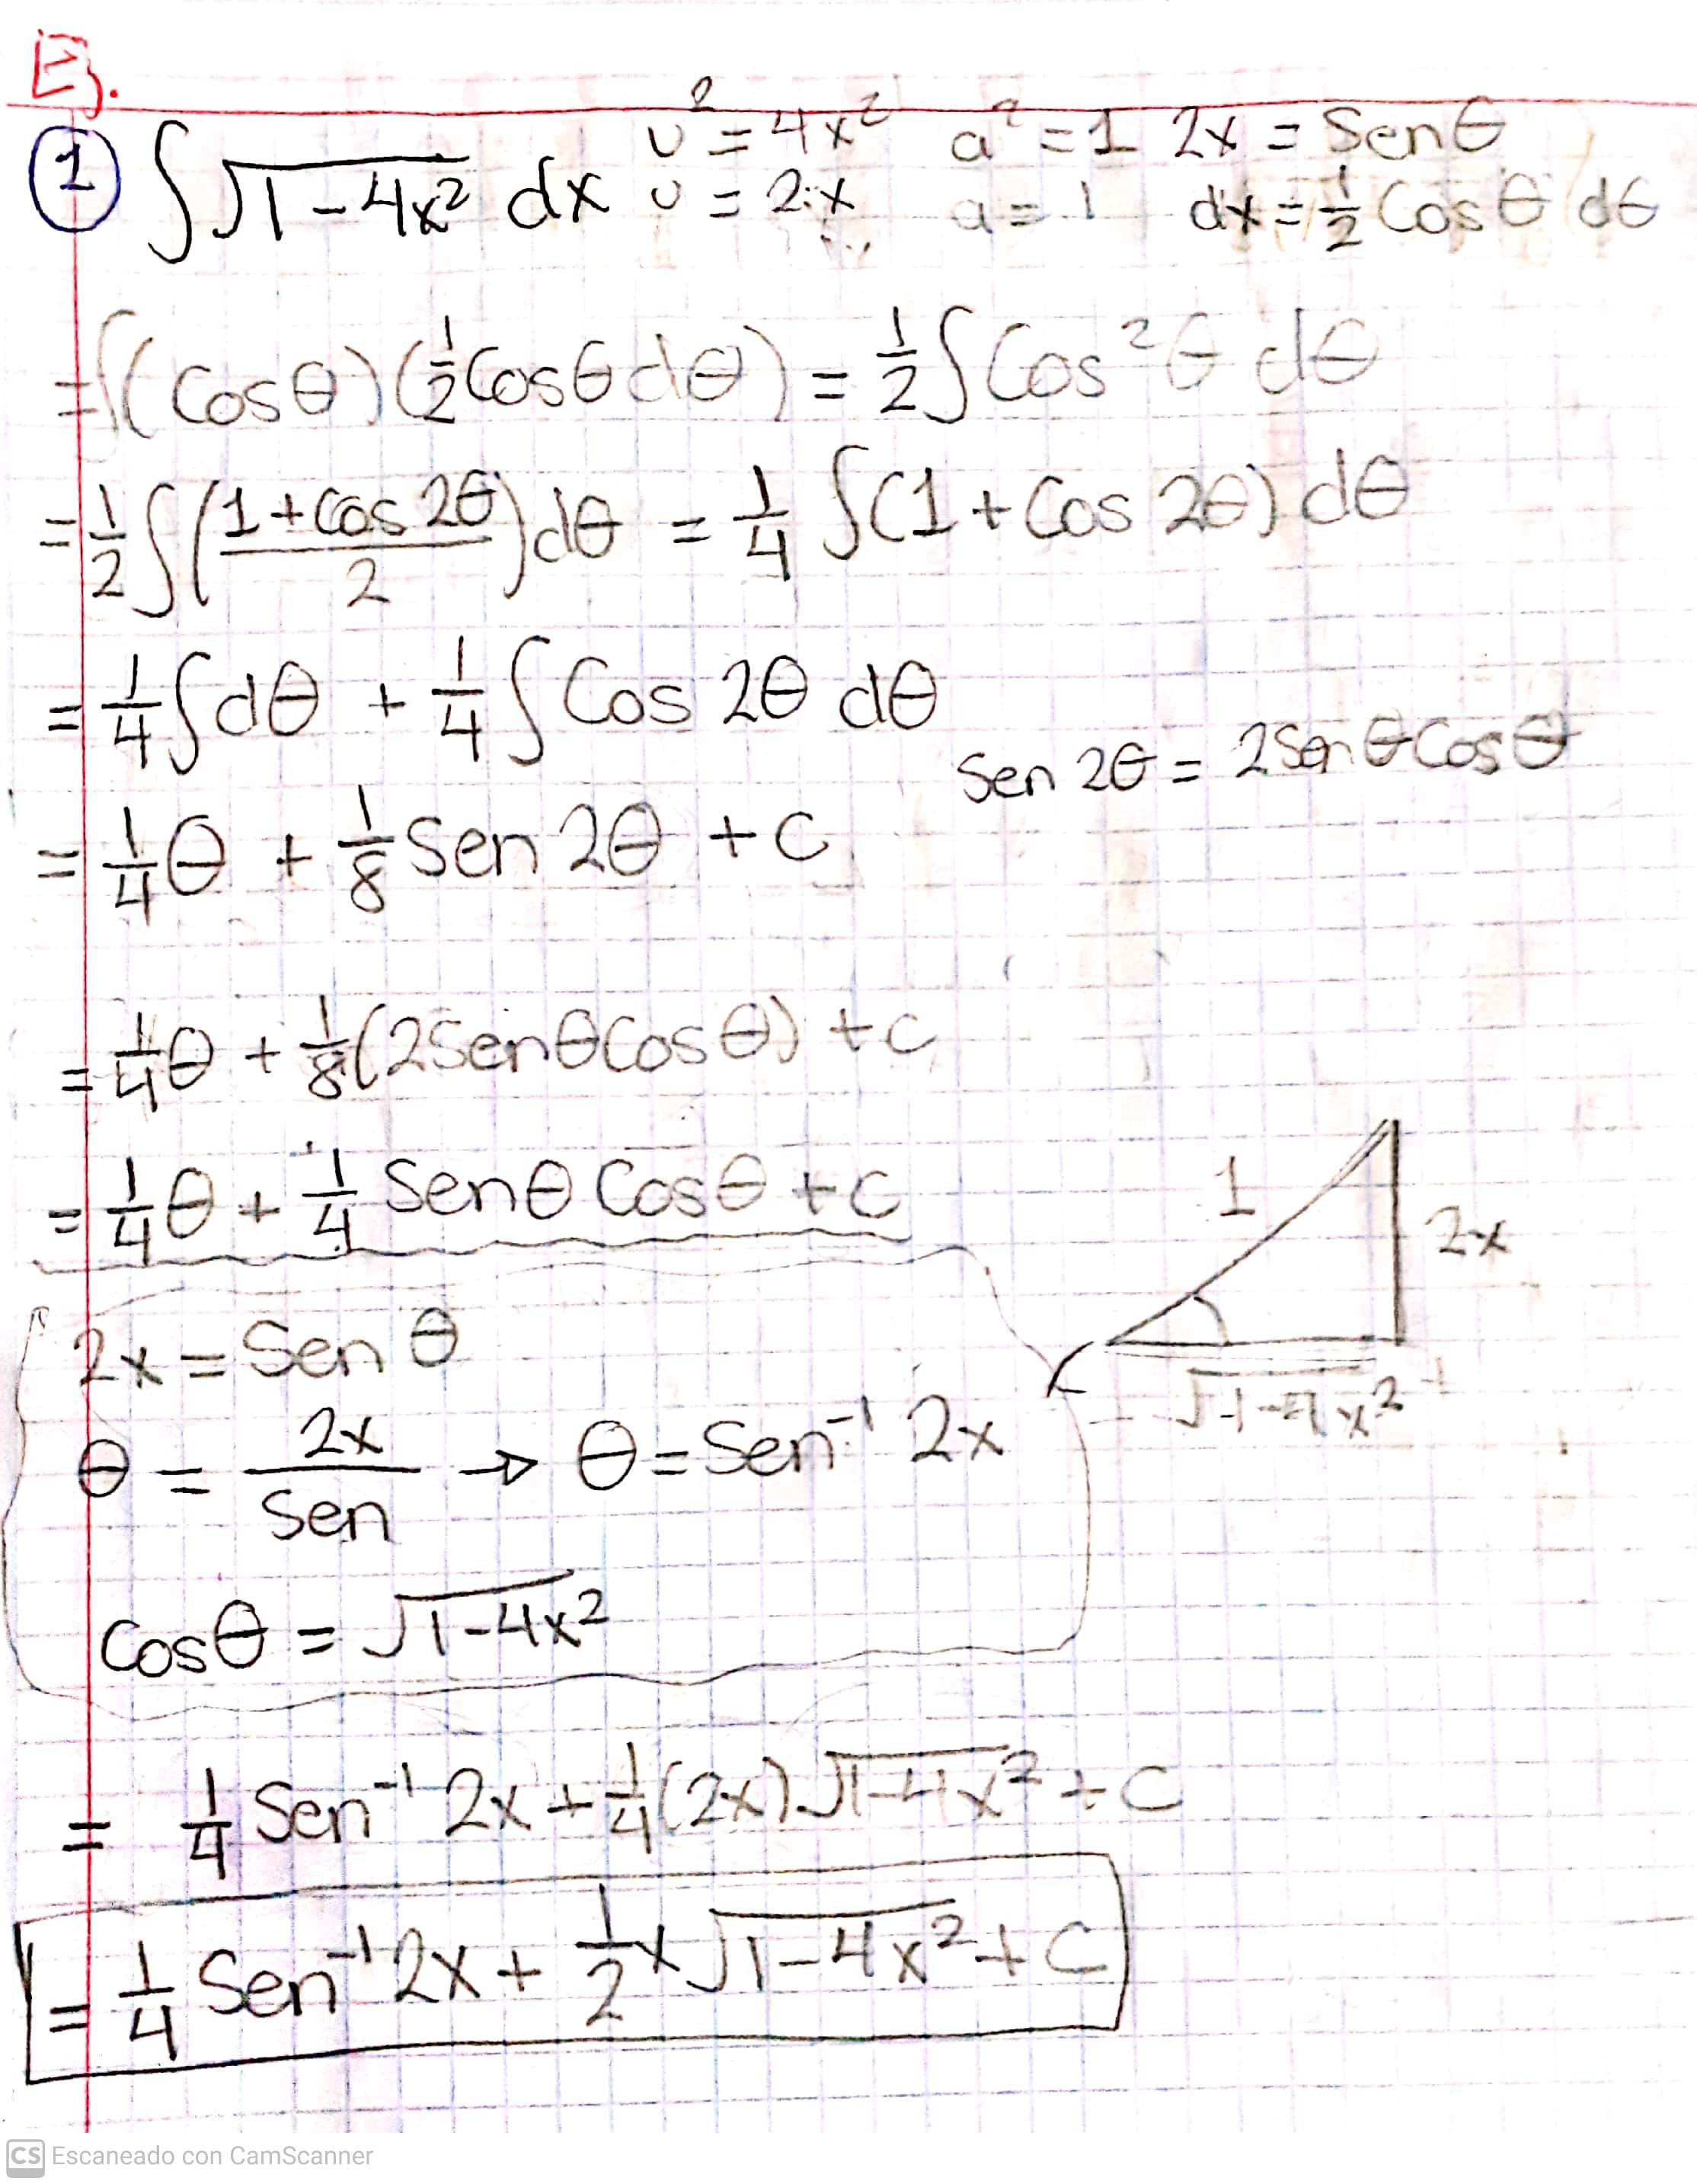 E.
1 ∫√(1-4x²) dx u² = 4x² a² = 1 2x = Senθ
u = 2x a = 1 dx = 1/2 Cosθ dθ
= ∫(Cosθ)(1/2 Cosθ dθ) = 1/2 ∫ Cos²θ dθ
= 1/2 ∫((1 + Cos 2θ)/2) dθ = 1/4 ∫(1 + Cos 2θ) dθ
= 1/4 ∫dθ + 1/4 ∫ Cos 2θ dθ
Sen 2θ = 2Senθ Cosθ
= 1/4 θ + 1/8 Sen 2θ + C
= 1/4 θ + 1/8 (2SenθCosθ) + C
= 1/4 θ + 1/4 Senθ Cosθ + C
1
2x
√(1-4x²)
2x = Sen θ
θ = 2x/Sen → θ = Sen⁻¹ 2x
Cosθ = √(1-4x²)
= 1/4 Sen⁻¹ 2x + 1/4 (2x) √(1-4x²) + C
= 1/4 Sen⁻¹ 2x + 1/2 x √(1-4x²) + C
CS Escaneado con CamScanner